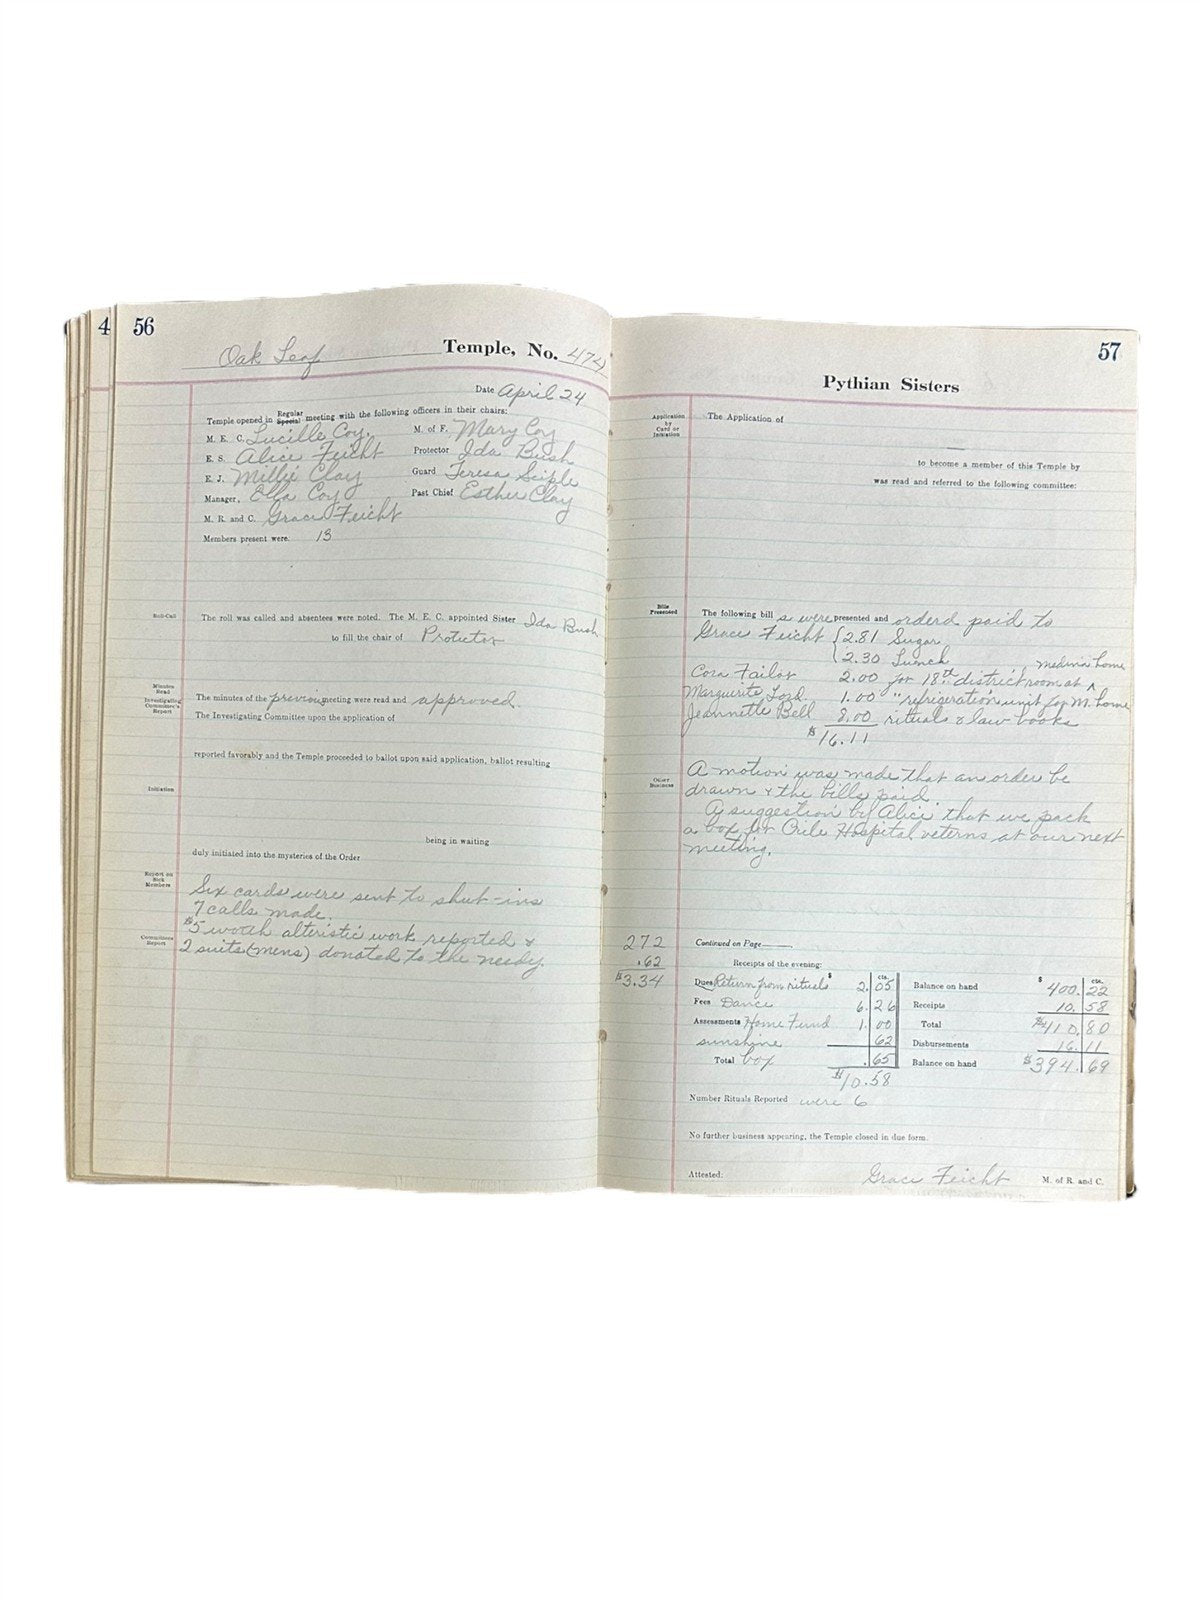 4
56
Oak Leaf Temple, No. 474
Date April 24
Temple opened in Regular Special meeting with the following officers in their chairs:
M. E. C. Lucille Coy. M. of F. Mary Coy
E. S. Alice Feicht Protector Ida Bush
E. J. Millie Clay Guard Teresa Seiple
Manager, Ella Coy Past Chief Esther Clay
M. R. and C. Grace Feicht
Members present were. 13
Roll-Call The roll was called and absentees were noted. The M. E. C. appointed Sister Ida Bush
to fill the chair of Protector
Minutes Read The minutes of the previous meeting were read and approved.
Investigating Committee's Report The Investigating Committee upon the application of
reported favorably and the Temple proceeded to ballot upon said application, ballot resulting
Initiation
being in waiting
duly initiated into the mysteries of the Order
Report on Sick Members Six cards were sent to shut-ins
7 calls made.
Committees Report $5 worth alteristic work reported &
2 suits (mens) donated to the needy.
57
Pythian Sisters
Application by Card or Initiation The Application of
to become a member of this Temple by
was read and referred to the following committee:
Bills Presented The following bill s were presented and orderd paid to
Grace Feicht { 2.81 Sugar
2.30 Lunch
medina home
Cora Failor 2.00 for 18th district room at ^
Marguerite Lord. 1.00 " refrigeration unit for M. home
Jeannette Bell 8.00 rituals & law books
$16.11
Other Business A motion was made that an order be
drawn & the bills paid.
A suggestion by Alice that we pack
a box for Hospital veterns at our next
meeting.
272
.62
$3.34
Continued on Page
Receipts of the evening:
$ cts. $ cts.
Dues Return from rituals 2.05 Balance on hand 400.22
Fees Dance 6.26 Receipts 10.58
Assessments Home Fund 1.00 Total $410.80
sunshine 62 Disbursements 16.11
Total box .65 Balance on hand $394.69
$10.58
Number Rituals Reported were 6
No further business appearing, the Temple closed in due form.
Attested: Grace Feicht M. of R. and C.